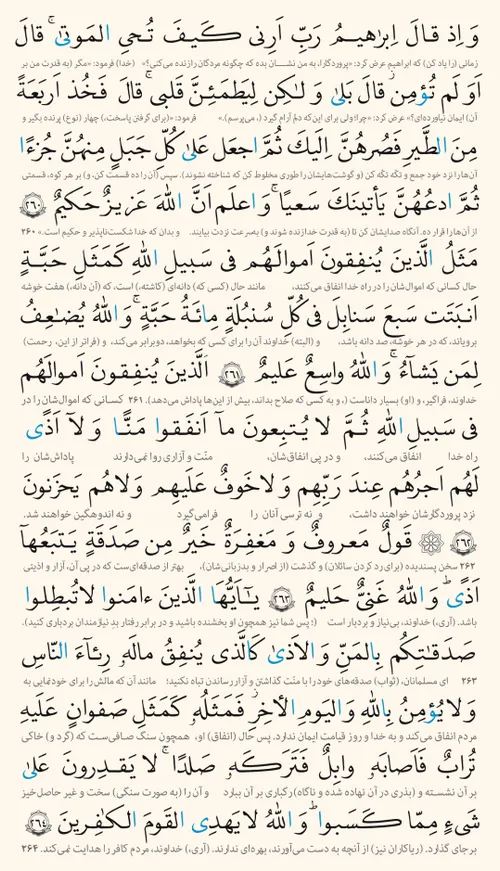 وَ اِذ قالَ اِبراهیمُ رَبِّ اَرِنی کَیفَ تُحیِ المَوتیٰ ۚ قالَ
زمانی (را یاد کن) که ابراهیم عرض کرد: «پروردگارا، به من نشـان بده که چگونه مردگان را زنده می‌کنی؟» (خدا) فرمود: «مگر (به قدرت من بر
اَوَ لَم تُؤمِن ۖ قالَ بَلیٰ وَ لٰکِن لِیَطمَئِنَّ قَلبی ۖ قالَ فَخُذ اَربَعَةً
آن) ایمان نیاورده‌ای؟» عرض کرد: «چرا؛ ولی برای این‌که دلم آرام گیرد (، می‌پرسم).» فرمود: «(برای گرفتن پاسخت،) چهار (نوع) پرنده بگیر و
مِنَ الطَّیرِ فَصُرهُنَّ اِلَیکَ ثُمَّ اجعَل عَلیٰ کُلِّ جَبَلٍ مِنهُنَّ جُزءًا
آن‌ها را نزد خود جمع و تکّه تکّه کن (و گوشت‌هایشان را طوری مخلوط کن که شناخته نشوند). سپس (آن را ده قسمت کن، و) بر هر کوه، قسمتی
ثُمَّ ادعُهُنَّ یَأتینَکَ سَعیًا ۚ وَ اعلَم اَنَّ اللّٰهَ عَزیزٌ حَکیمٌ ﴿٢٦٠﴾
از آن‌ها را قرار ده. آنگاه صدایشان کن تا (به قدرت خدا زنده شوند و) به‌سرعت نزدت بیایند. و بدان که خدا شکست‌ناپذیر و حکیم است.» ۲۶۰
مَثَلُ الَّذینَ یُنفِقونَ اَموالَهُم فی سَبیلِ اللّٰهِ کَمَثَلِ حَبَّـةٍ
حال کسانی که اموال‌شان را در راه خدا انفاق می‌کنند، مانند حال (کسی که) دانه‌ای (کاشته،) است، که (آن دانه،) هفت خوشه
اَنبَتَت سَبعَ سَنابِلَ فی کُلِّ سُنبُلَةٍ مِائَةُ حَبَّةٍ ۗ وَ اللّٰهُ یُضٰعِفُ
برویاند، که در هر خوشه، صد دانه باشد، و (البته) خداوند آن را برای کسی که بخواهد، دوبرابر می‌کند، و (فراتر از این، رحمت)
لِمَن یَشاءُ ۗ وَ اللّٰهُ واسِعٌ عَلیمٌ ﴿٢٦١﴾ اَلَّذینَ یُنفِقونَ اَموالَهُم
خداوند، فراگیر، و (او) بسیار داناست (، و به کسی که صلاح بداند، بیش از این‌ها پاداش می‌دهد). ۲۶۱ کسانی که اموال‌شان را در
فی سَبیلِ اللّٰهِ ثُمَّ لا یُتبِعونَ ما اَنفَقوا مَنًّا وَ لا اَذًی
راه خدا انفاق می‌کنند، و در پی انفاق‌شان، منّت و آزاری روا نمی‌دارند پاداش‌شان را
لَهُم اَجرُهُم عِندَ رَبِّهِم وَ لا خَوفٌ عَلَیهِم وَ لا هُم یَحزَنونَ
نزد پروردگارشان خواهند داشت، و نه ترسی آنان را فرا می‌گیرد و نه اندوهگین خواهند شد.
﴿٢٦٢﴾ قَولٌ مَعروفٌ وَ مَغفِرَةٌ خَیرٌ مِن صَدَقَةٍ یَتبَعُها
۲۶۲ سخن پسندیده (برای رد کردن سائلان) و گذشت (از اصرار و بدزبانی‌شان)، بهتر از صدقه‌ای‌ست که در پی آن، آزار و اذیتی
اَذًی ۗ وَ اللّٰهُ غَنیٌّ حَلیمٌ ﴿٢٦٣﴾ یٰاَیُّهَا الَّذینَ ءامَنوا لا تُبطِلوا
باشد. (آری،) خداوند، بی‌نیاز و بردبار است (؛ پس شما نیز همچون او بخشنده باشید و در برابر رفتار بدِ نیازمندان بردباری کنید).
صَدَقٰتِکُم بِالمَنِّ وَ الاَذیٰ کَالَّذی یُنفِقُ مالَهٗ رِئاءَ النّاسِ
۲۶۳ ای مسلمانان، (ثواب) صدقه‌های خود را با منّت گذاشتن و آزار رساندن تباه نکنید؛ مانند آن که مالش را برای خودنمایی به
وَ لا یُؤمِنُ بِاللّٰهِ وَ الیَومِ الآخِرِ ۖ فَمَثَلُهٗ کَمَثَلِ صَفوانٍ عَلَیهِ
مردم انفاق می‌کند و به خدا و روز قیامت ایمان ندارد. پس حال (انفاق) او، همچون سنگ صافی‌ست که (گرد و) خاکی
تُرابٌ فَاَصابَهٗ وابِلٌ فَتَرَکَهٗ صَلدًا ۖ لا یَقدِرونَ عَلیٰ
بر آن نشسته و (بذری در آن نهاده شده و ناگاه) رگباری بر آن ببارد و آن را (به صورت سنگی) سخت و غیر حاصل‌خیز
شَیءٍ مِمّا کَسَبوا ۗ وَ اللّٰهُ لا یَهدِی القَومَ الکٰفِرینَ ﴿٢٦٤﴾
بر جای گذارد. (ریاکاران نیز) از آنچه به دست می‌آورند، بهره‌ای ندارند. (آری،) خداوند، مردم کافر را هدایت نمی‌کند. ۲۶۴